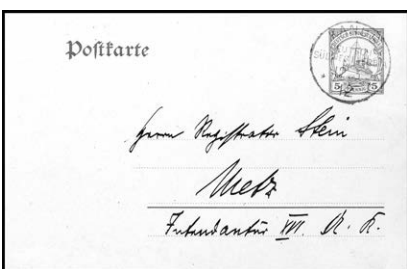 Postkarte
5 5
Herrn Registrator Stein
Metz
Intendantur XVI. A. K.